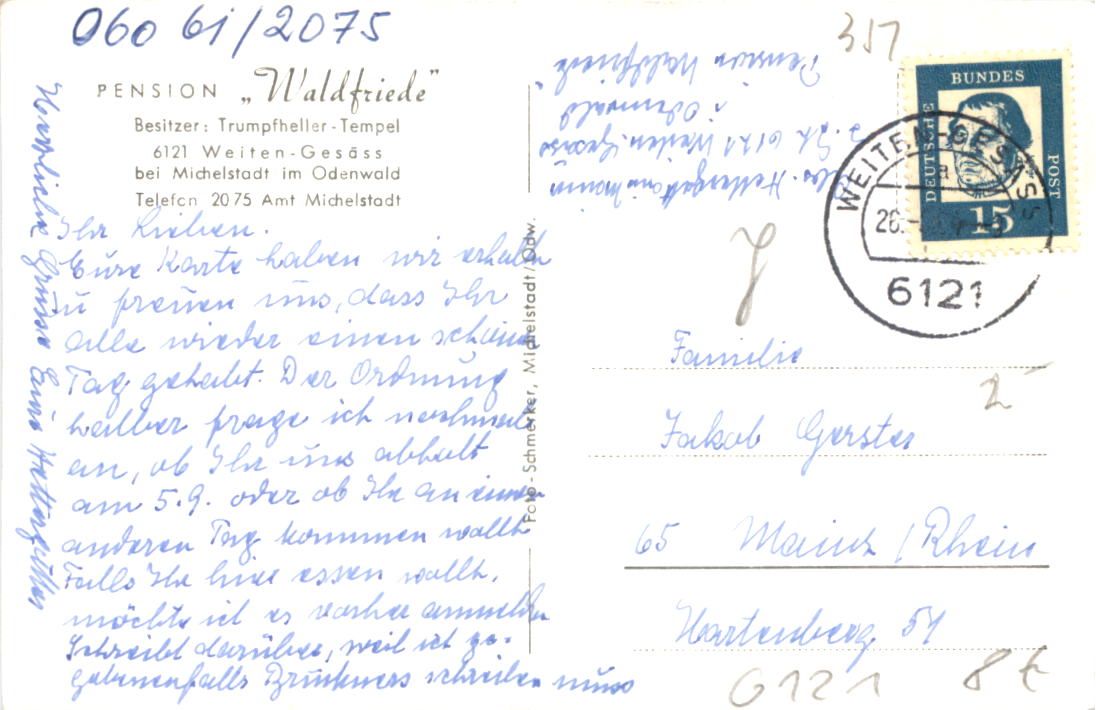 060 61/2075
PENSION „Waldfriede"
Besitzer: Trumpfheller-Tempel
6121 Weiten-Gesäss
bei Michelstadt im Odenwald
Telefon 2075 Amt Michelstadt
Ihr Lieben.
Eure Karte haben wir erhalten
u freuen uns, dass Ihr
alle wieder einen schönen
Tag gehabt. Der Ordnung
halber frage ich nochmal
an, ob Ihr uns abholt
am 5.9. oder ob Ihr an einem
anderen Tag kommen wollt
Falls Ihr hier essen wollt,
möchte ich es vorher anmelden
Schreibt darüber, weil ich ge-
gebenenfalls Bruckners schreiben muss
Herzliche Grüsse Eure
Foto-Schmerker, Michelstadt/Odw.
z. Zt. 6121 Weiten-Gesäss
i Odenwald
Pension Waldfriede
357
DEUTSCHE BUNDES POST
15
WEITEN-GESÄSS
a
26.
6121
Familie
Jakob Gerster
65 Mainz / Rhein
Hartenberg 51
2
6121
8 €